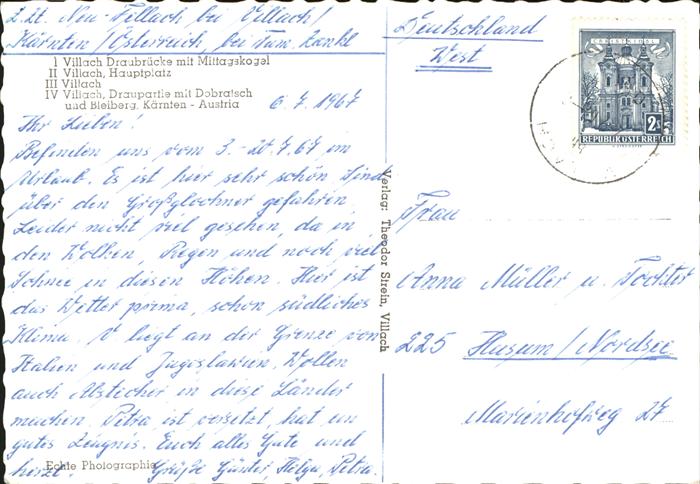 z. Zt. Neu-Fellach bei Villach/
Kärnten/Österreich, bei Fam. Zankl
I Villach Draubrücke mit Mittagskogel
II Villach, Hauptplatz
III Villach
IV Villach, Draupartie mit Dobratsch
und Bleiberg, Kärnten - Austria
6.7.1967
Ihr Lieben!
Befinden uns vom 3.-20.7.67 im
Urlaub. Es ist hier sehr schön. Sind
über den Großglockner gefahren.
Leider nicht viel gesehen, da in
den Wolken, Regen und noch viel
Schnee in diesen Höhen. Hier ist
das Wetter prima, schon südliches
Klima. V liegt an der Grenze von
Italien und Jugoslawien. Wollen
auch Abstecher in diese Länder
machen. Petra ist versetzt, hat ein
gutes Zeugnis. Euch alles Gute und
herzl. Grüße Günter, Helga, Petra.
Echte Photographie
Verlag: Theodor Strein, Villach
Deutschland
West
CHRISTKINDL
2S
REPUBLIK ÖSTERREICH
Frau
Anna Müller u. Tochter
225 Husum/Nordsee
Marienhofweg 27